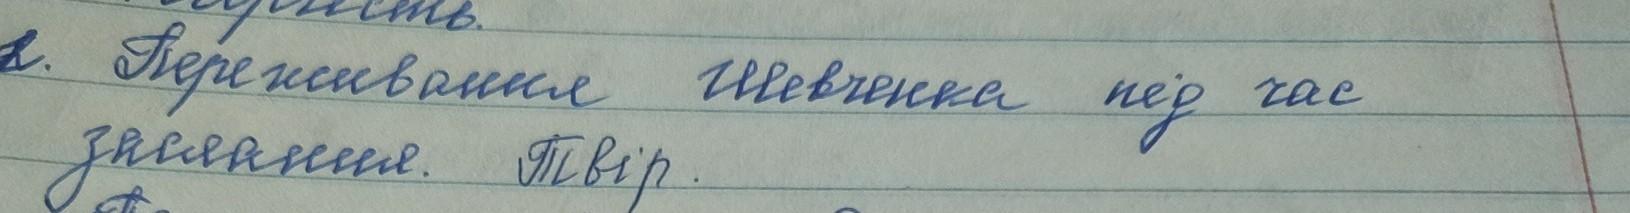 2. Переживання Шевченка під час
заслання. Твір.